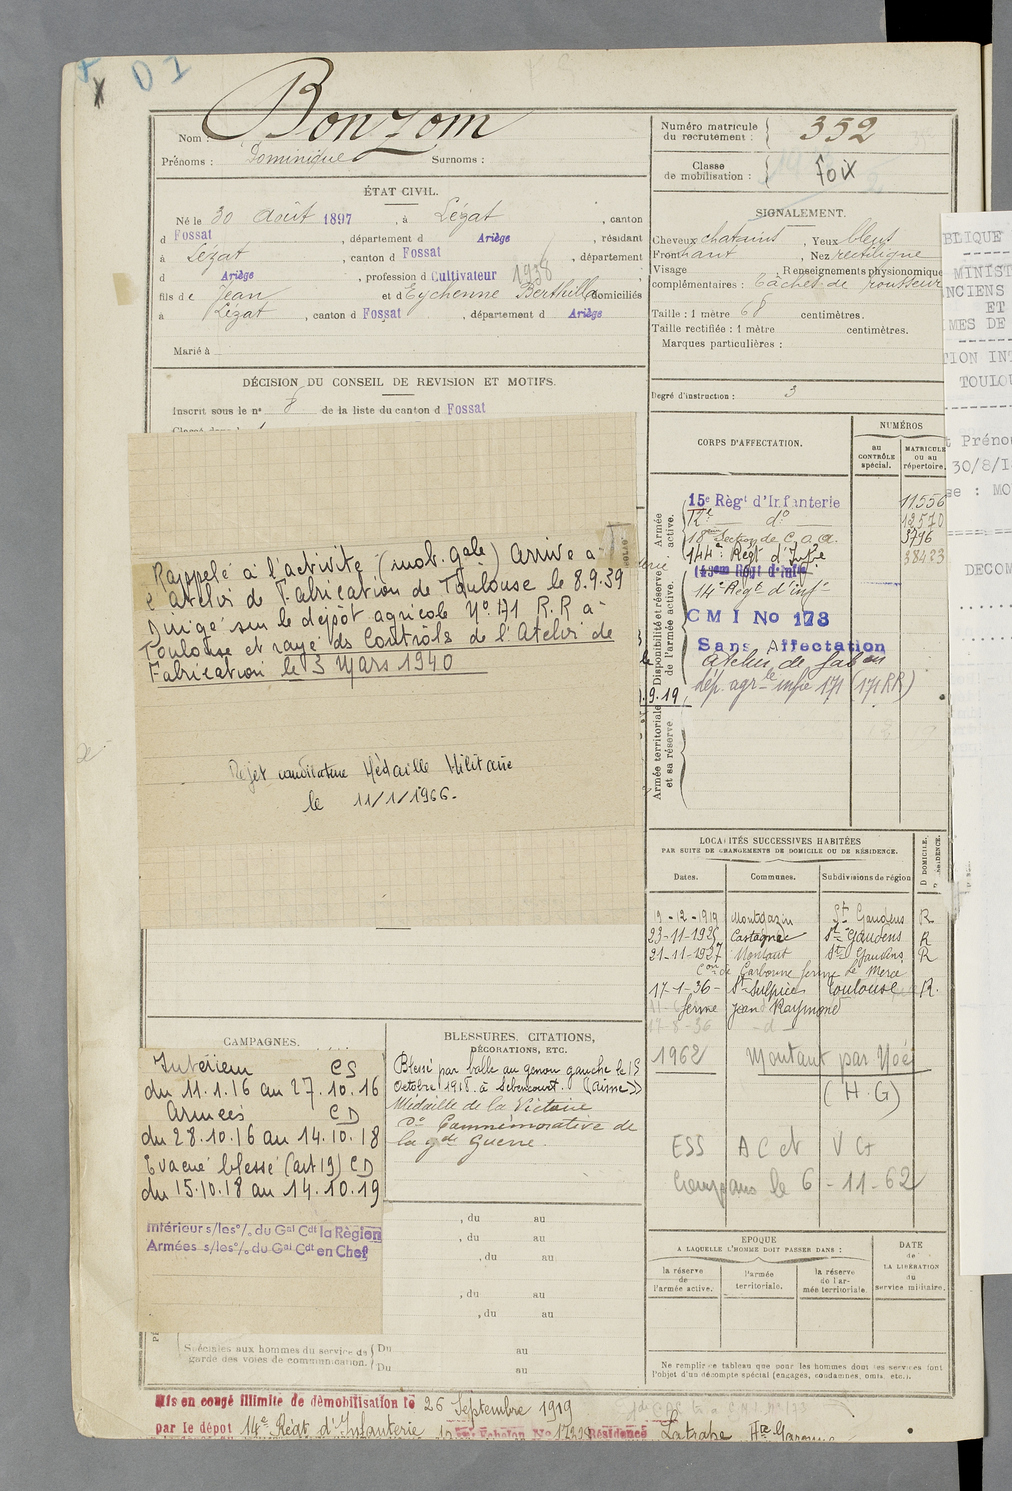 D I
Nom : Bonzom
Prénoms : Dominique Surnoms :
ÉTAT CIVIL.
Né le 30 août 1897, à Lézat, canton
d Fossat, département d Ariège, résidant
à Lézat, canton d Fossat, département
d Ariège, profession d Cultivateur 1938
fils de Jean et d Eychenne Berthilla domiciliés
à Lézat, canton d Fossat, département d Ariège
Marié à
DÉCISION DU CONSEIL DE REVISION ET MOTIFS.
Inscrit sous le nº 8 de la liste du canton d Fossat
Rappelé à l'activité (mob. gale) Arrive a
l'Atelier de Fabrication de Toulouse le 8.9.39
Dirigé sur le dépôt agricole Nº 171 R.R à
Toulouse et rayé ds Contrôls de l'Atelier de
Fabrication le 3 Mars 1940
Rejet candidature Médaille Militaire
le 11/1/1966.
CAMPAGNES.
Intérieur CS
du 11.1.16 au 27.10.16
Armées CD
du 28.10.16 au 14.10.18
Evacué blessé (art 19) CD
du 15.10.18 au 14.10.19
Intérieur s/les º/. du Gal Cdt la Région
Armées s/les º/. du Gal Cdt en Chef
BLESSURES, CITATIONS,
DÉCORATIONS, ETC.
Blessé par balle au genou gauche le 15
Octobre 1918 à Sebencourt. (Aisne)
Médaille de la Victoire
dº Commémorative de
la gde Guerre.
, du au
, du au
, du au
, du au
, du au
Spéciales aux hommes du service de Du au
garde des voies de communication. Du au
Mis en congé illimité de démobilisation le 26 Septembre 1919
par le dépôt 14e Régt d'Infanterie Echelon No Résidence Latrape Hte Garonne
Numéro matricule
du recrutement : 352
Classe
de mobilisation : Foix
SIGNALEMENT.
Cheveux chatains, Yeux bleus
Front haut, Nez rectiligne
Visage Renseignements physionomiques
complémentaires : tâches de rousseur
Taille : 1 mètre 68 centimètres.
Taille rectifiée : 1 mètre centimètres.
Marques particulières :
Degré d'instruction : 3
CORPS D'AFFECTATION.
NUMÉROS
au
CONTRÔLE
spécial.
MATRICULE
ou au
répertoire.
Armée
active.
15e Règt d'Infanterie 11556
12e dº 12570
18eme Section de C.O.A. 3796
144e Régt d'Infie 38423
Disponibilité et réserve
de l'armée active.
14e Régt d'infie
C M I No 173
Sans Affectation
atelier de fabon
dép. agrle infie 171 (171 RR)
Armée territoriale
et sa réserve
LOCALITÉS SUCCESSIVES HABITÉES
PAR SUITE DE CHANGEMENTS DE DOMICILE OU DE RÉSIDENCE.
Dates. Communes. Subdivisions de région
9-12-1919 Montgazin St Gaudens R
23-11-1925 Castagnac St Gaudens R
21-11-1927 Montaut St Gaudens R
Con de Carbonne ferme Le Merce
17-1-36- St Sulpice Toulouse R.
ferme Jean Raymond
17-8-36 -d-
1962 Montaut par Noé
(H.G)
ESS A C et V G
le 6-11-62
EPOQUE
A LAQUELLE L'HOMME DOIT PASSER DANS :
DATE
de
LA LIBÉRATION
du
service militaire.
la réserve
de
l'armée active.
l'armée
territoriale.
la réserve
de l'ar-
mée territoriale.
Ne remplir ce tableau que pour les hommes dont les services font
l'objet d'un décompte spécial (engagés, condamnés, omis, etc.).
BLIQUE
MINIST
NCIENS
ET
MES DE
TION INT
TOULOU
t Préno
30/8/1
se : MO
DECOM